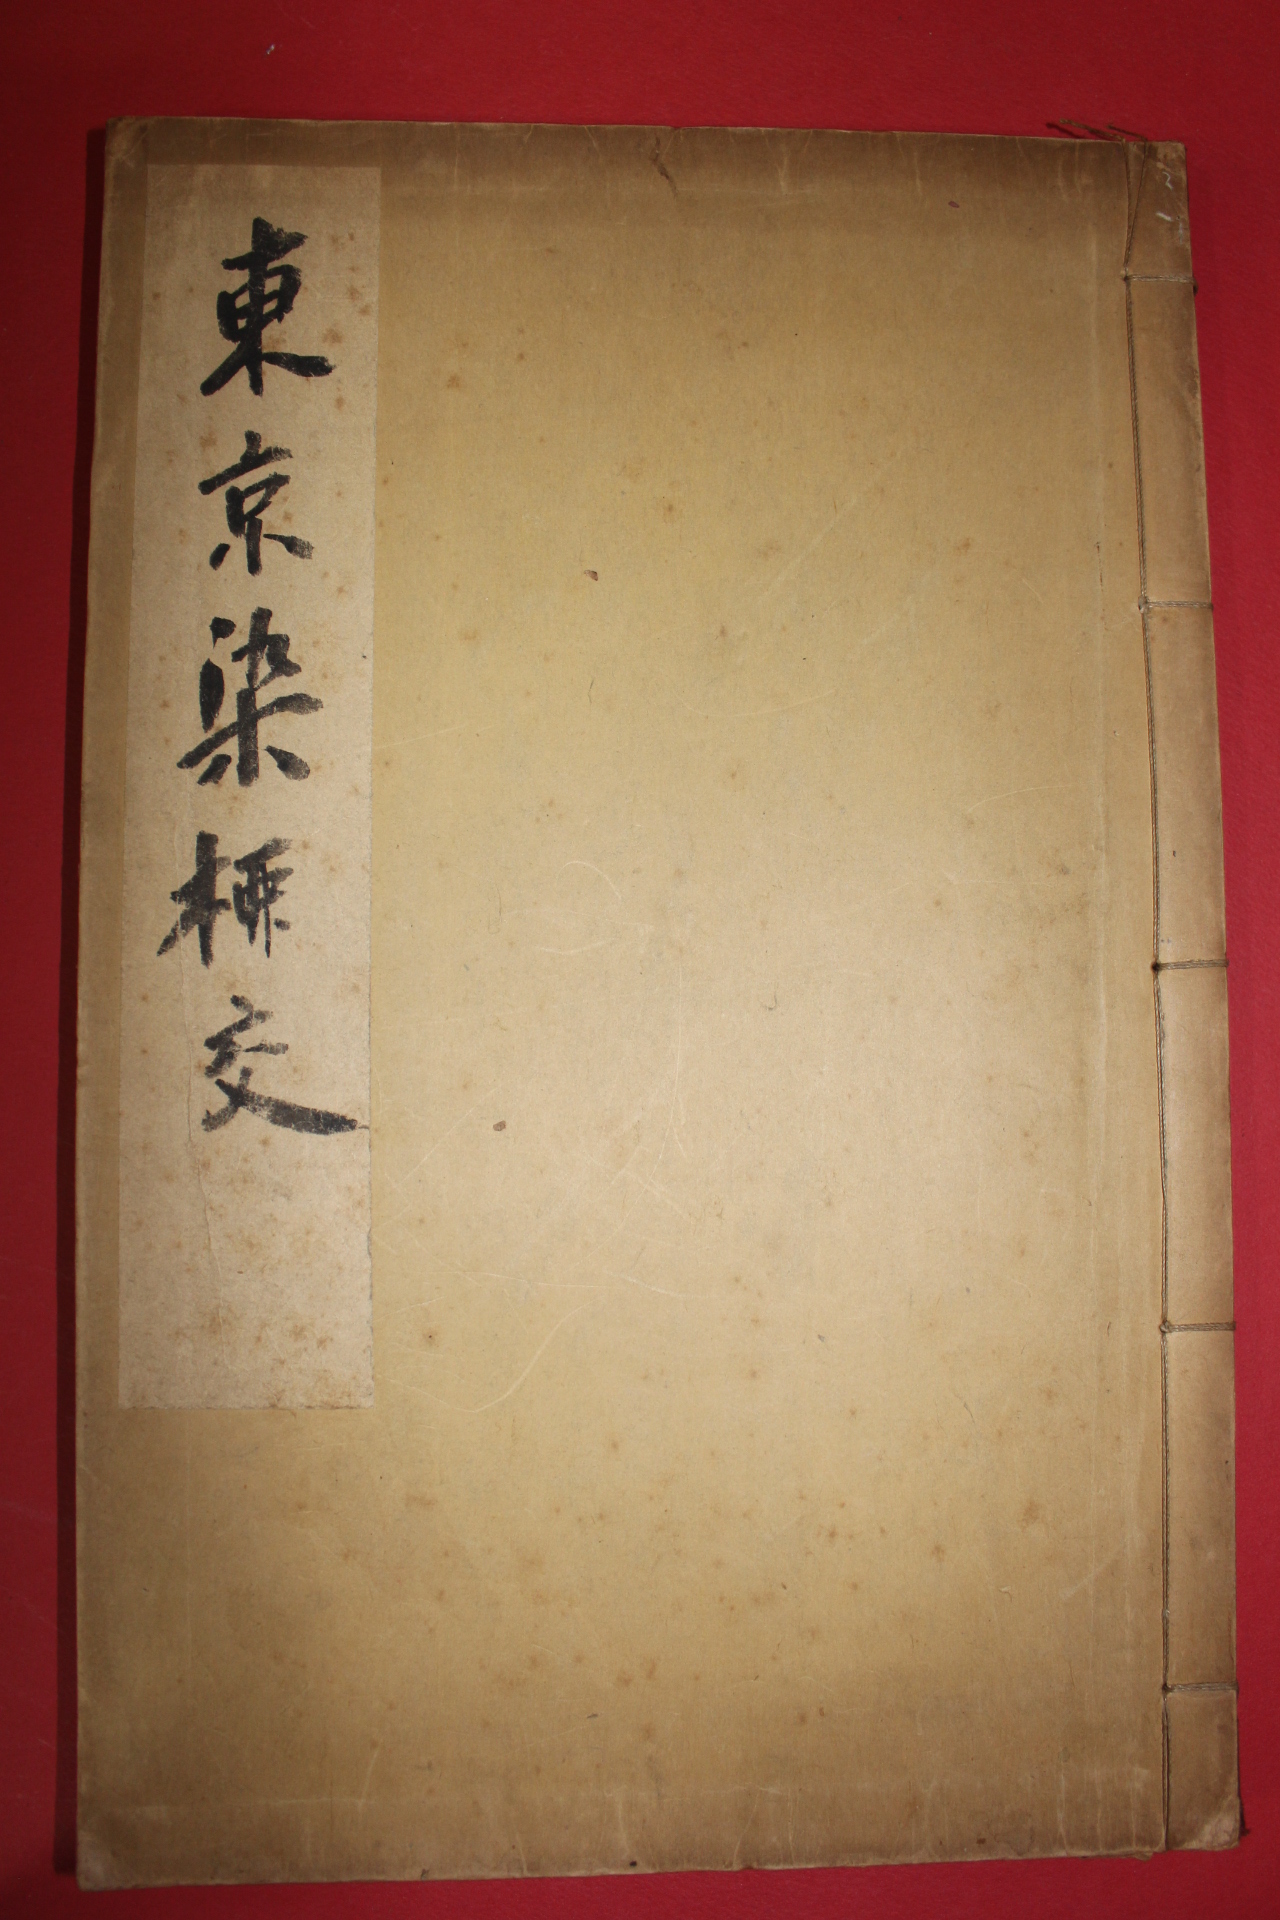 東京染標交